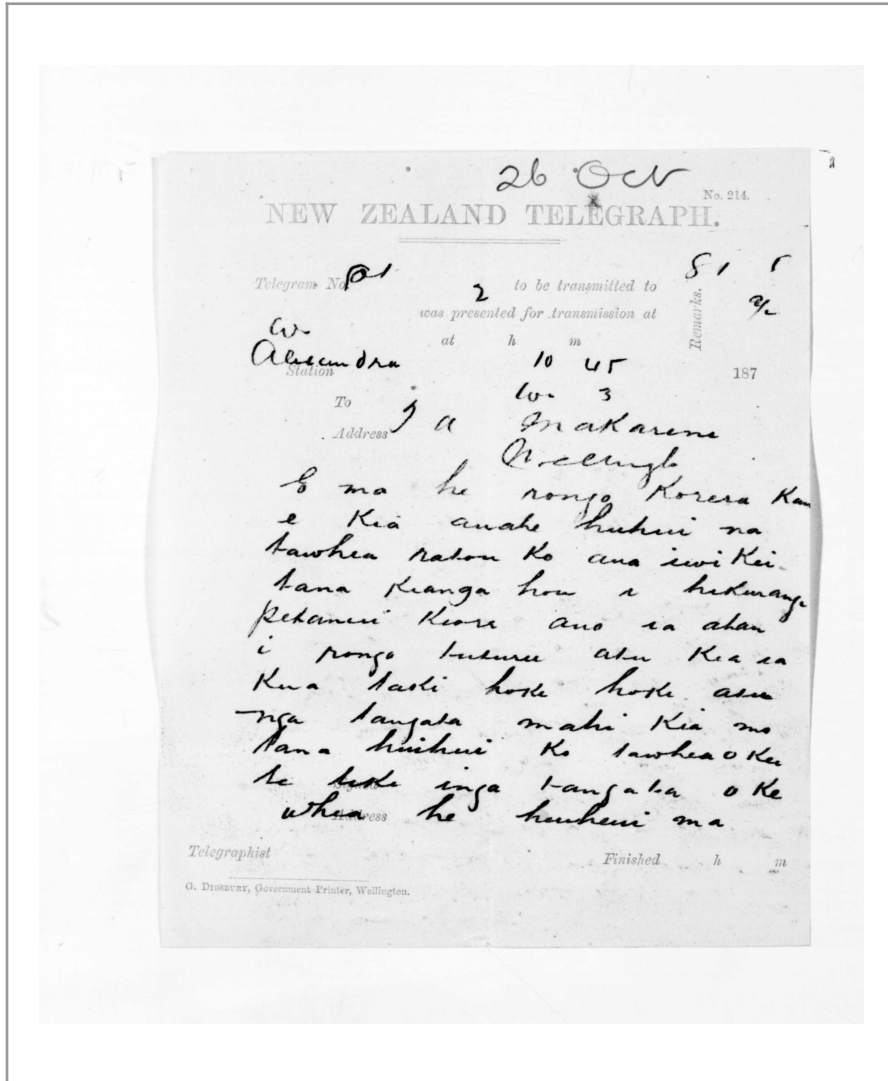 26 Oct
No. 214.
NEW ZEALAND TELEGRAPH.
Telegram No. 2 to be transmitted to
81 5
was presented for transmission at
Remarks. 2/-
at h m
Alexandra 10 45
Station 187
3
To
Address J a Makarini
E ma he rongo Korero Kau
e Kia anake huihui na
tawhea ratou Ko ana iwi Kei
tana Kianga hou i hikurangi
petanui Kiore ano ia atau
i rongo tuturu atu Kia ia
Kua taki hoki hoki atu
nga tangata mahi Kia mo
tana huihui Ko tawhea o Kei
te tiki inga tangata o Ke
Address whea he huihui ma
Telegraphist Finished h m
G. DIDSBURY, Government Printer, Wellington.